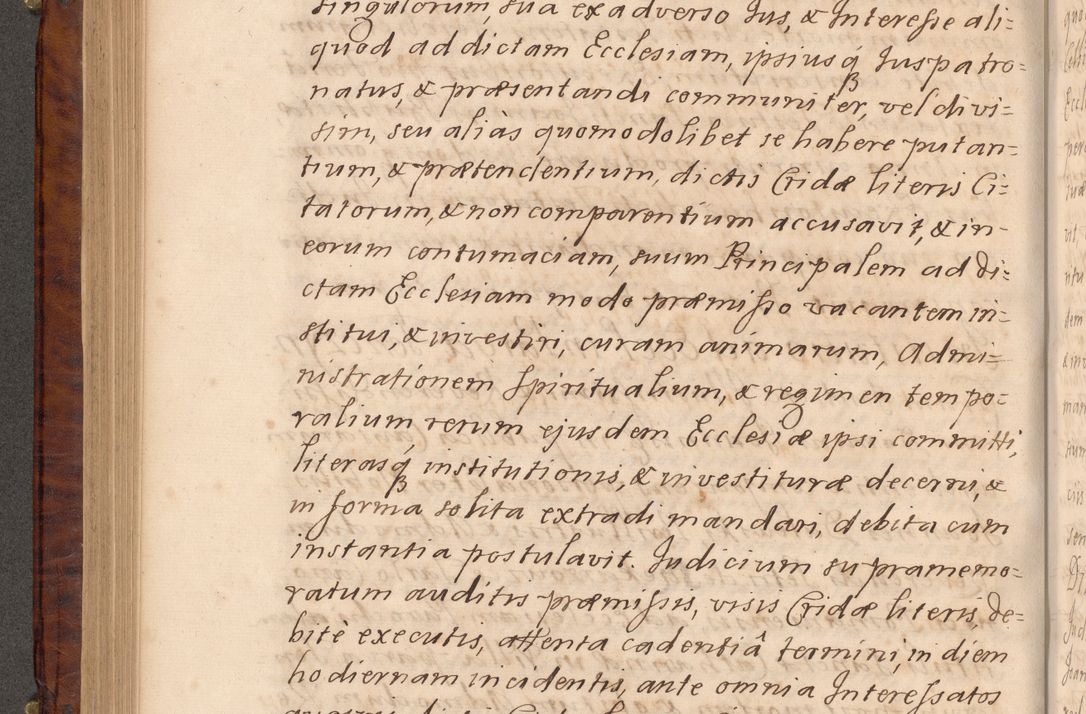 singulorum, sua ex adverso Jus, & Interesse ali=
quod ad dictam Ecclesiam, ipsiusq́ Juspatro=
natus, & præsentandi communiter, vel divi=
sim, seu aliàs quomodolibet se habere putan=
tium, & prætendentium, dictis Cridæ literis Ci=
tatorum, & non comparentium accusavit, & in
eorum contumaciam, suum Principalem ad di=
ctam Ecclesiam modo præmisso vacantem in=
stitui, & investiri, curam animarum, Admi=
nistrationem Spiritualium, & regimen tempo=
ralium rerum ejusdem Ecclesiæ ipsi committi,
literasq́ institutionis, & investituræ decerni, &
in forma solita extradi mandari, debita cum
instantia postulavit. Judicium supramemo=
ratum auditis præmissis, visis Cridæ literis, de=
bitè executis, attenta cadentiâ termini, in diem
hodiernam incidentis, ante omnia Interessatos